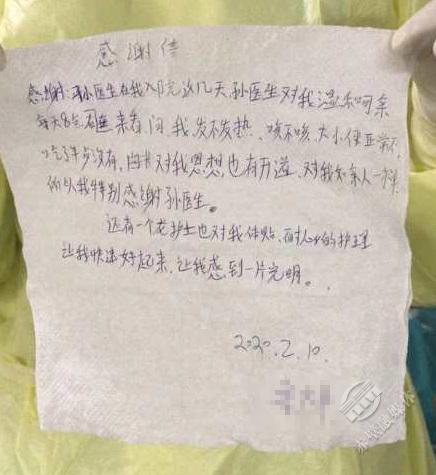 感谢信
感谢:孙医生在我入院这几天,孙医生对我温和可亲
每天8点 来看问我,发不发热、咳不咳、大小便正常不,
吃了早点没有,同时对我思想也有开道,对我如亲人一样
所以我特别感谢孙医生。
还有一个龙护士也对我体贴、耐心的护理
让我快速好起来,让我感到一片光明。
2020.2.10.